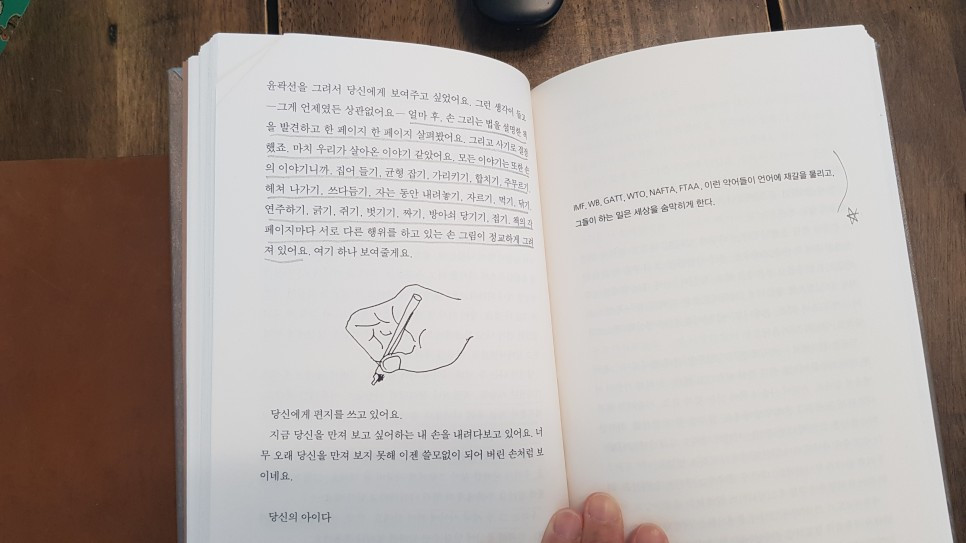 윤곽선을 그려서 당신에게 보여주고 싶었어요. 그런 생각이 들고
—그게 언제였든 상관없어요— 얼마 후, 손 그리는 법을 설명한 책
을 발견하고 한 페이지 한 페이지 살펴봤어요. 그리고 사기로 결정
했죠. 마치 우리가 살아온 이야기 같았어요. 모든 이야기는 또한 손
의 이야기니까. 집어 들기, 균형 잡기, 가리키기, 합치기, 주무르기
헤쳐 나가기, 쓰다듬기, 자는 동안 내려놓기, 자르기, 먹기, 닦기
연주하기, 긁기, 쥐기, 벗기기, 짜기, 방아쇠 당기기, 접기. 책의 각
페이지마다 서로 다른 행위를 하고 있는 손 그림이 정교하게 그려
져 있어요. 여기 하나 보여줄게요.
당신에게 편지를 쓰고 있어요.
지금 당신을 만져 보고 싶어하는 내 손을 내려다보고 있어요. 너
무 오래 당신을 만져 보지 못해 이젠 쓸모없이 되어 버린 손처럼 보
이네요.
당신의 아이다
IMF, WB, GATT, WTO, NAFTA, FTAA, 이런 약어들이 언어에 재갈을 물리고,
그들이 하는 일은 세상을 숨막히게 한다.